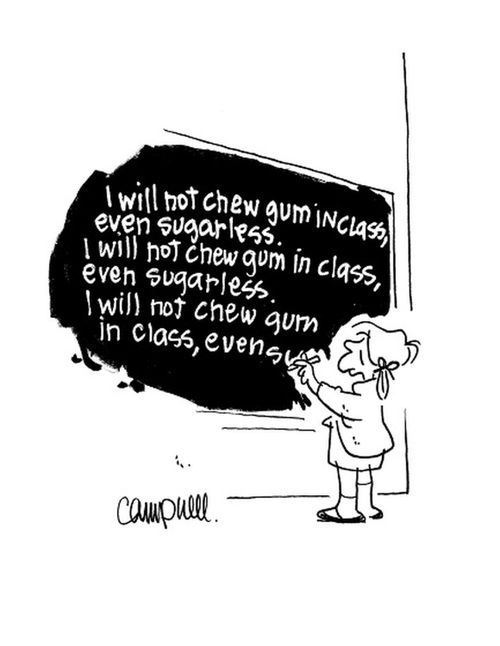 I will not chew gum iN CLASS,
even sugarless.
I will not chew gum in class,
even sugarless.
I will not chew gum
in class, even su
Campbell.